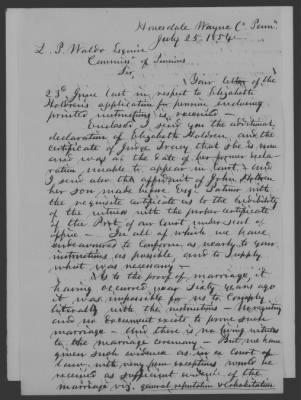 Honesdale Wayne Co Penna
July 25. 1854
L. P. Waldo Esquire
Commissr of Pensions
Sir,
Your letter of the
23d June last in respect to Elizabeth
Holdren's application for pension enclosing
printed instructions is received -
Enclosed I send you the additional
declaration of Elizabeth Holdren, and the
certificate of Judge that she is now
and was at the date of her former decla-
ration unable to appear in Court - and
I send also the affidavit of John Holdren
her son made before Esqr with
the requisite certificate as to the credibility
of the witness with the proper certificate
of the of our Court under seal of
office - In all of which we have
endeavoured to conform as nearly to your
instructions as possible, and to supply
what was necessary -
As to the proof of marriage, it
having occurred near sixty years ago
it was impossible for us to comply
literally with the instructions - No registry
and no document exists to prove such
marriage - And there is no living witness
to the marriage ceremony - But we have
given such evidence as in a Court of
law, with very few exceptions would be
received as sufficient evidence of the
marriage viz, general reputation & cohabitation